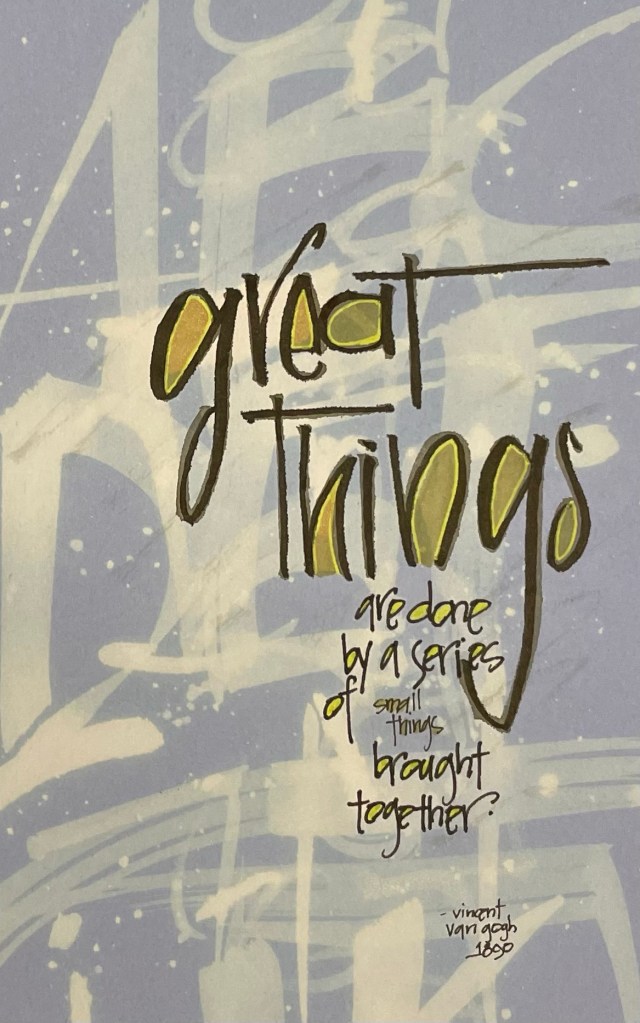 great
things
are done
by a series
of small
things
brought
together.
- vincent
van gogh
1890